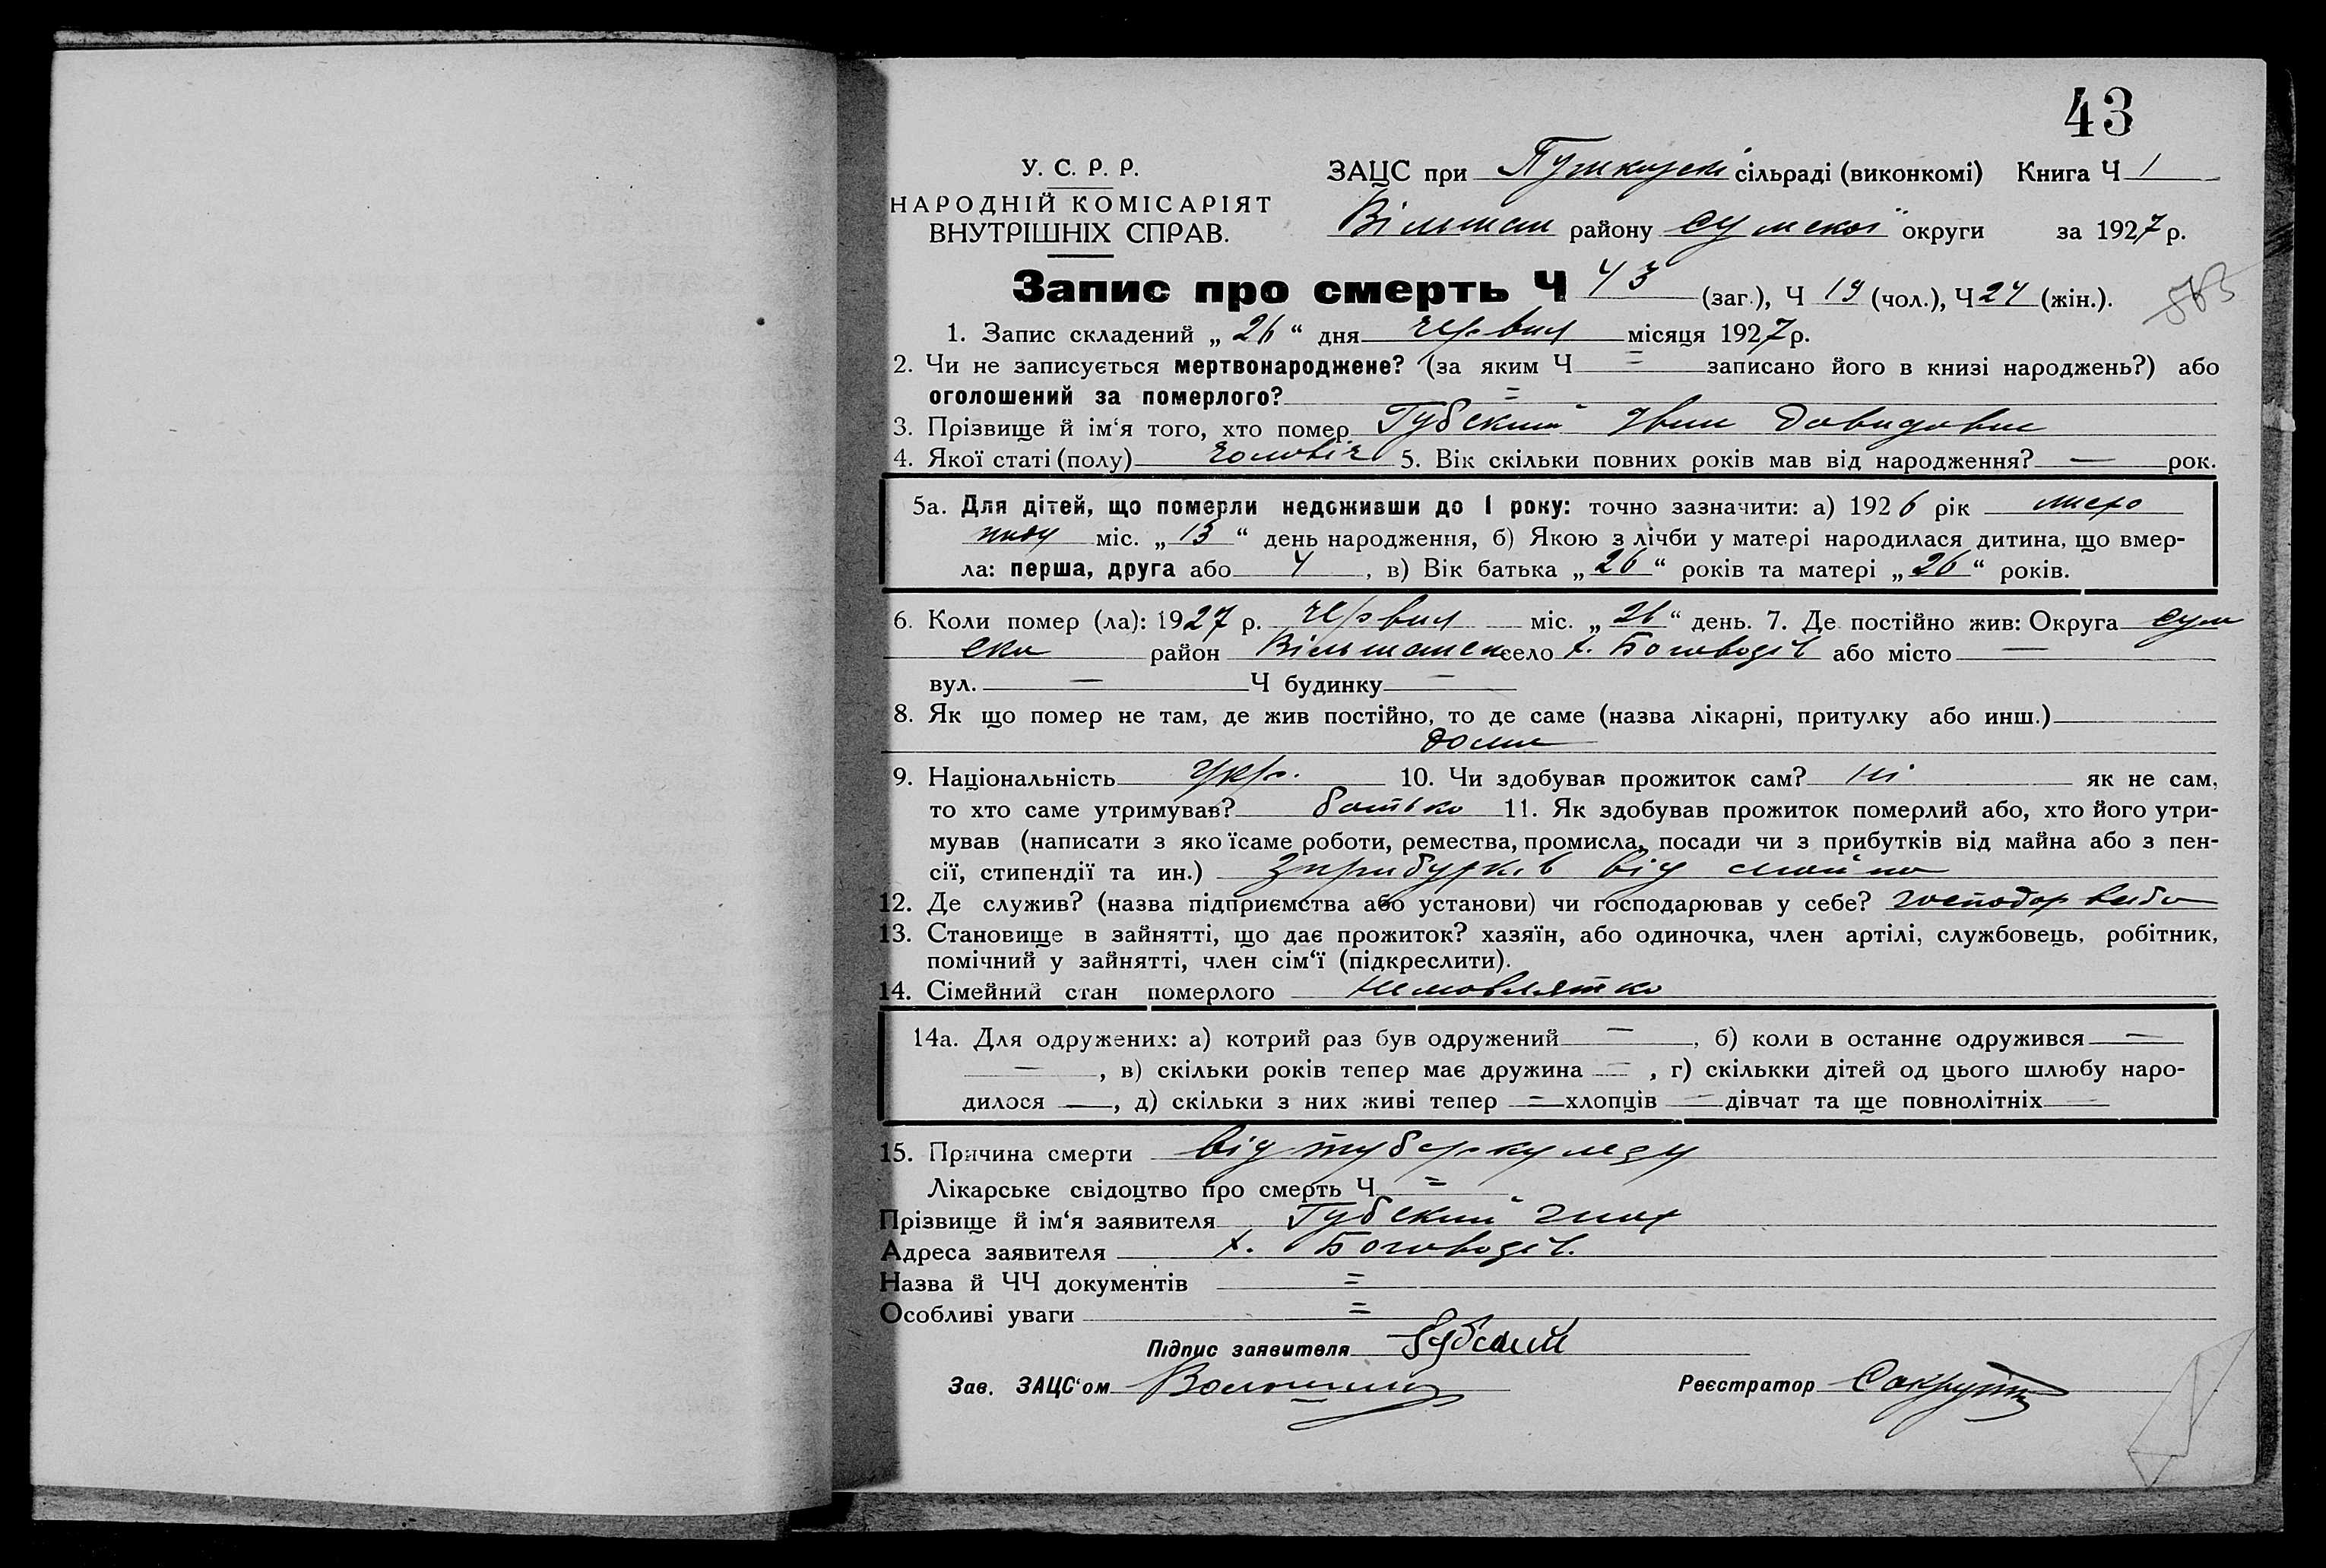 43
У. С. Р. Р.
НАРОДНІЙ КОМІСАРІЯТ
ВНУТРІШНІХ СПРАВ.
ЗАЦС при сільраді (виконкомі) Книга Ч 1
Вільшан району Сумської округи за 1927 р.
Запис про смерть Ч 43 (заг.), Ч 19 (чол.), Ч 24 (жін.).
1. Запис складений „ 26 “ дня червня місяця 1927 р.
2. Чи не записується мертвонароджене? (за яким Ч = записано його в книзі народжень?) або
оголошений за померлого? =
3. Прізвище й ім‘я того, хто помер Губский Іван Давидович
4. Якої статі (полу) чоловіч 5. Вік скільки повних років мав від народження? — рок.
5а. Для дітей, що померли недоживши до 1 року: точно зазначити: а) 1926 рік листо
паду міс. „ 13 “ день народження, б) Якою з лічби у матері народилася дитина, що вмер-
ла: перша, друга або 4, в) Вік батька „ 26 “ років та матері „ 26 “ років.
6. Коли помер (ла): 1927 р. червня міс. „ 26 “ день. 7. Де постійно жив: Округа Сум
ска район Вільшанск село х. або місто —
вул. — Ч будинку —
8. Як що помер не там, де жив постійно, то де саме (назва лікарні, притулку або инш.)
дома
9. Національність Укр. 10. Чи здобував прожиток сам? ні як не сам,
то хто саме утримував? батько 11. Як здобував прожиток померлий або, хто його утри-
мував (написати з якоїсаме роботи, ремества, промисла, посади чи з прибутків від майна або з пен-
сії, стипендії та ин.) з прибутків від майна
12. Де служив? (назва підприємства або установи) чи господарював у себе?
13. Становище в зайнятті, що дає прожиток? хазяїн, або одиночка, член артілі, службовець, робітник,
помічний у зайнятті, член сім‘ї (підкреслити).
14. Сімейний стан померлого немовлятко
14а. Для одружених: а) котрий раз був одружений —, б) коли в останнє одружився —
—, в) скільки років тепер має дружина =, г) скількки дітей од цього шлюбу наро-
дилося —, д) скільки з них живі тепер = хлопців — дівчат та ще повнолітніх —
15. Причина смерти від туберкулезу
Лікарське свідоцтво про смерть Ч =
Прізвище й ім‘я заявителя Губский
Адреса заявителя х.
Назва й ЧЧ документів =
Особливі уваги =
Підпис заявителя Губский
Зав. ЗАЦС‘ом
Реєстратор